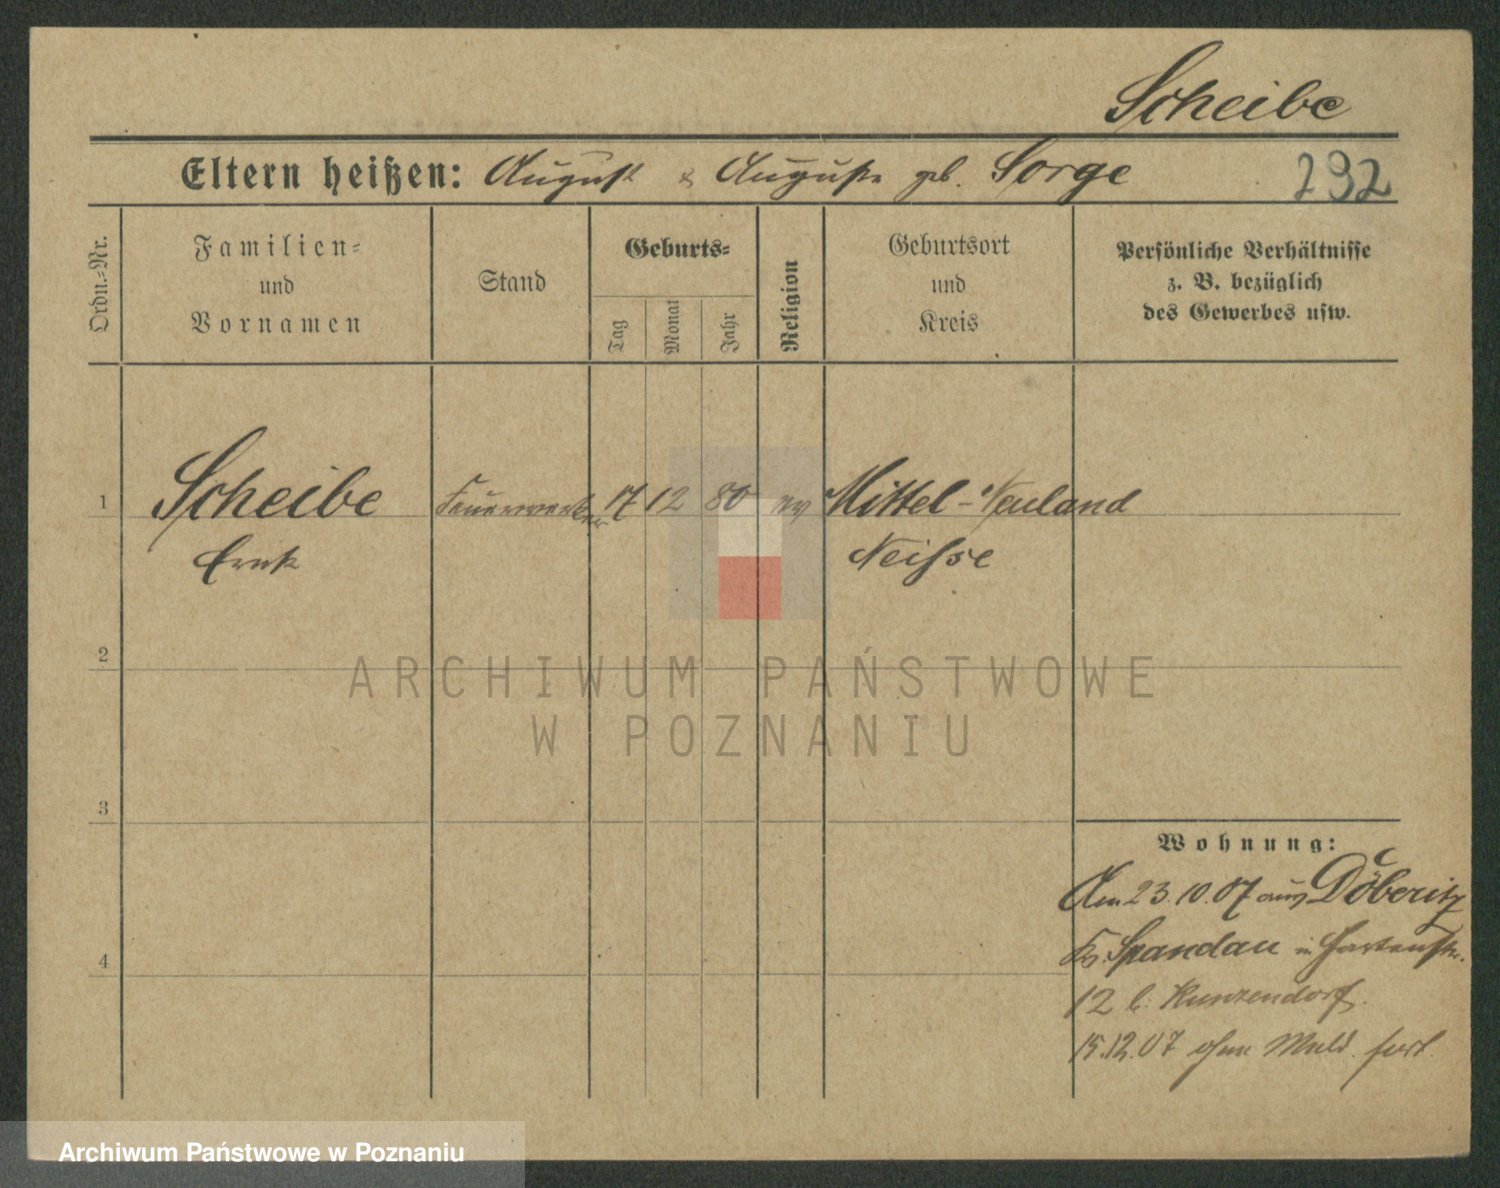 Scheibe
Eltern heißen: August & Auguste geb. Sorge 292
Ordn.-Nr.
Familien- und Vornamen
Stand
Geburts-
Tag
Monat
Jahr
Religion
Geburtsort und Kreis
Persönliche Verhältnisse
z. B. bezüglich
des Gewerbes usw.
1 Scheibe Feuerwerker 17 12 80 ev Mittel-Neuland
Neisse
2
ARCHIWUM PAŃSTWOWE
W POZNANIU
3
Wohnung:
Am 23.10.07 aus Döberitz
Spandau in Gartenstr.
4
12 b. Kunzendorf.
15.12.07 ohne Meld. fort.
Archiwum Państwowe w Poznaniu